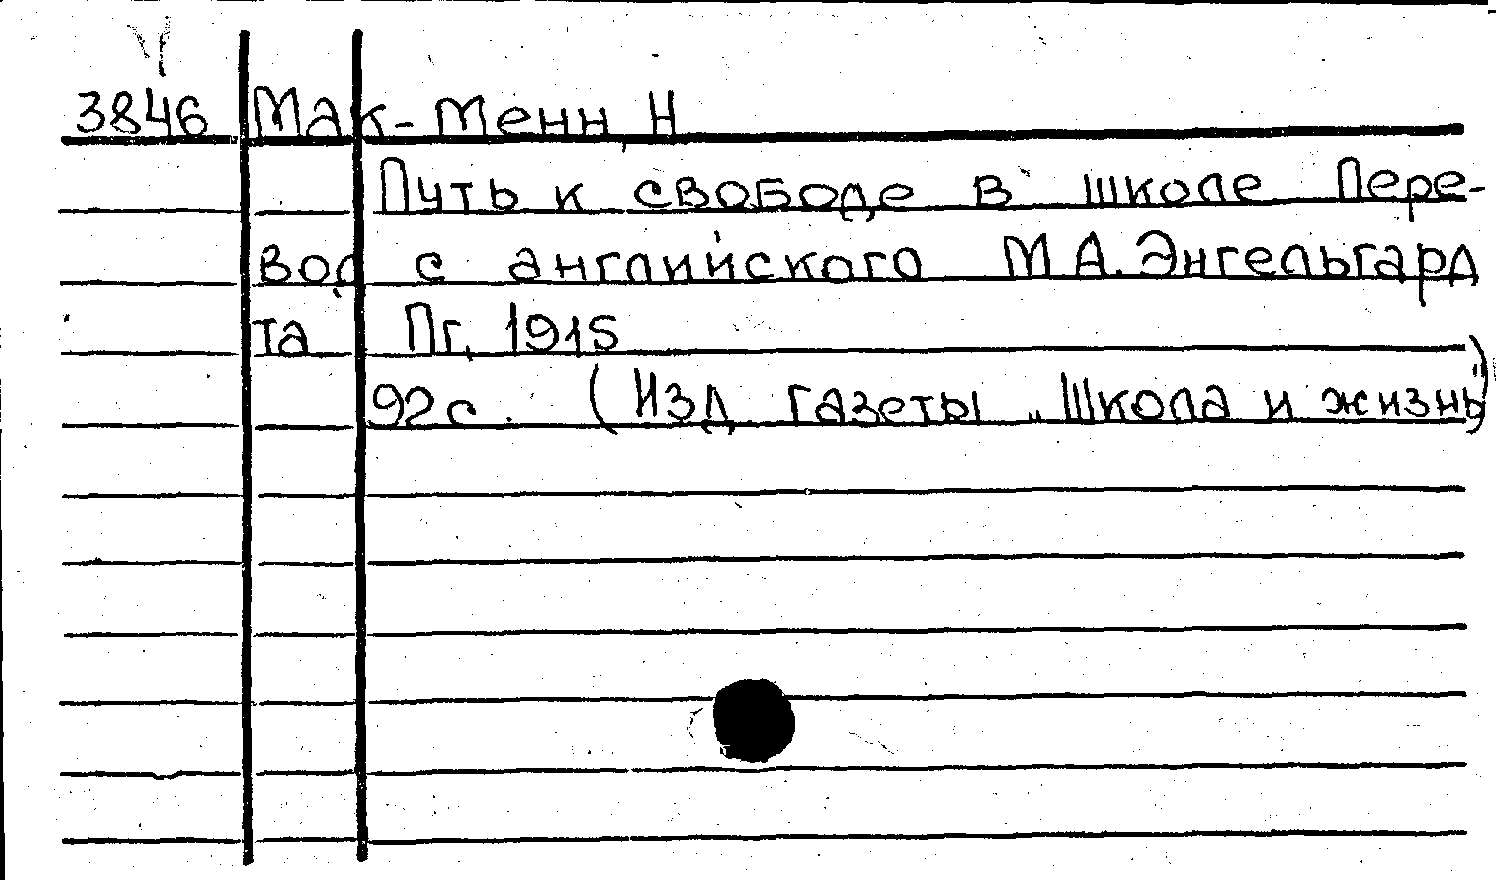 3846 Мак-Менн Н
Путь к свободе в школе Пере-
вод с английского М А. Энгельгард
та Пг, 1915
92с. (Изд газеты „Школа и жизнь")